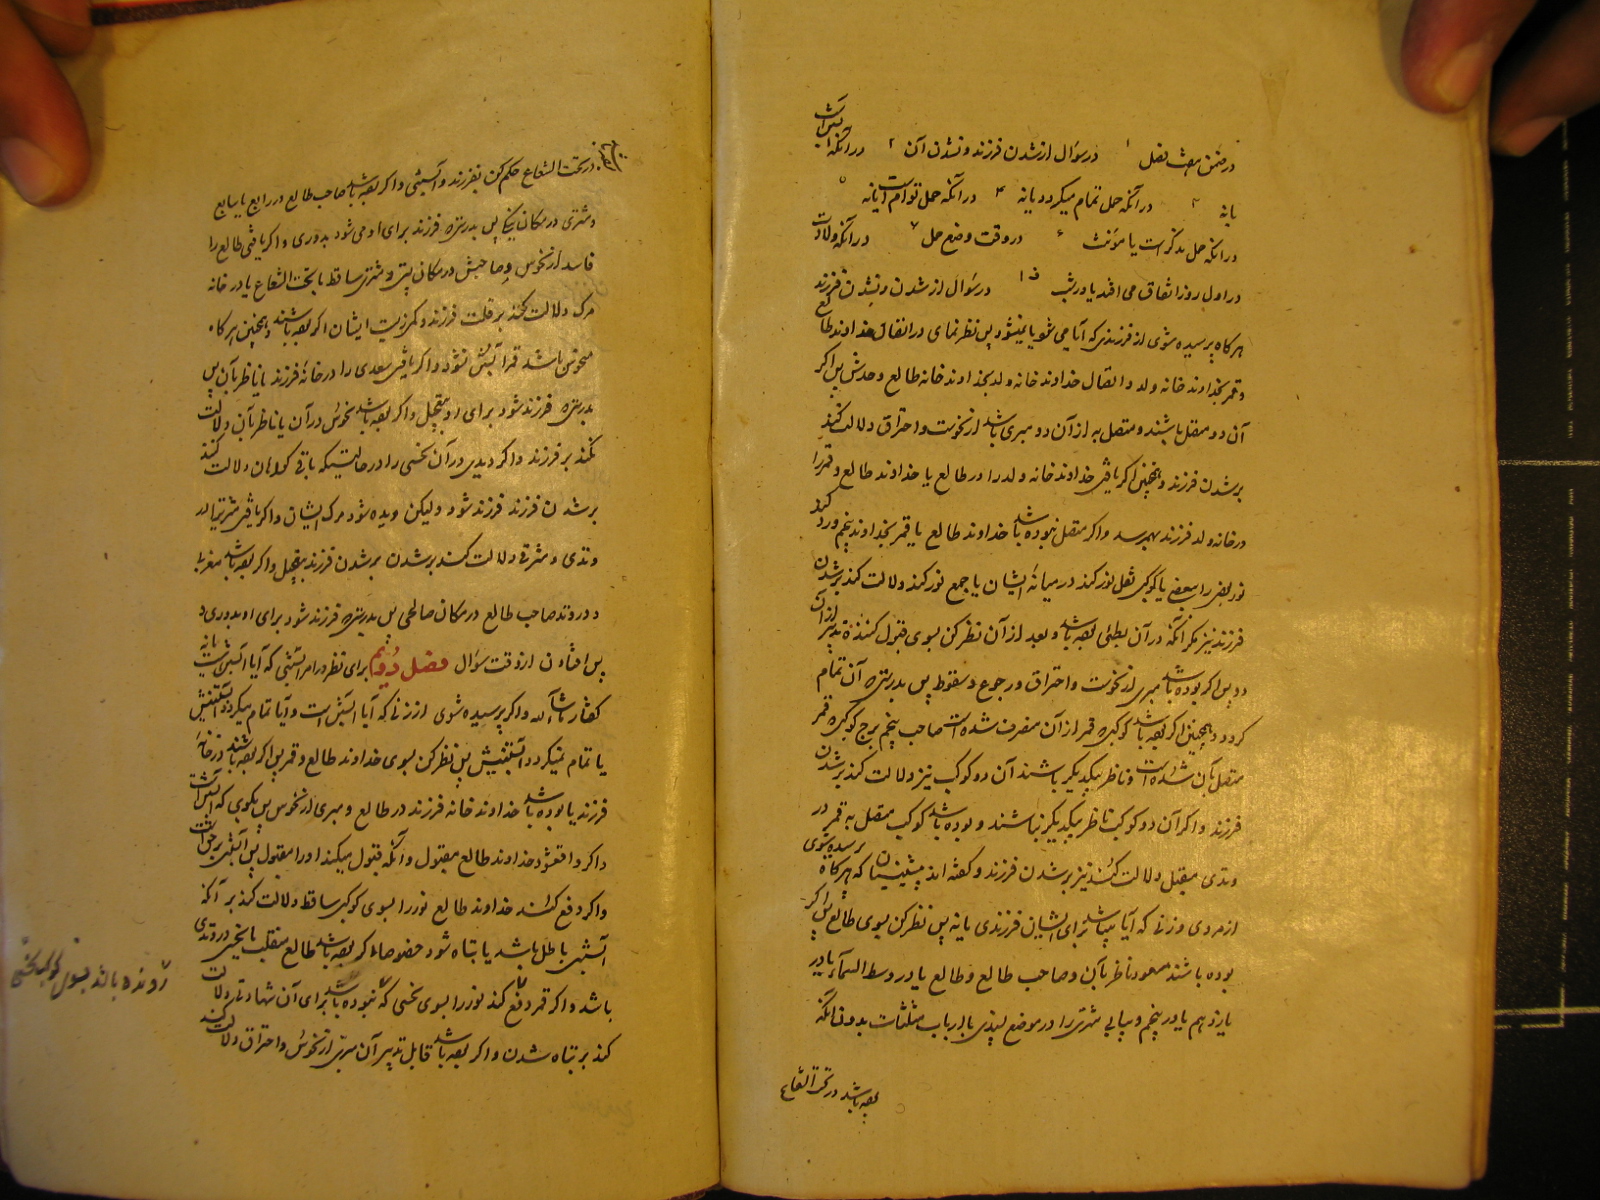 در ضمن هفت فصل ۱ در سؤال از شدن فرزند و نشدن آن ۲ در آنکه آبستن است
یا نه ۳ در آنکه حمل تمام میگردد یا نه ۴ در آنکه حمل توأم است یا نه ۵
در آنکه حمل مذکر است یا مؤنث ۶ در وقت وضع حمل ۷ در آنکه ولادت
در اول روز اتفاق می افتد یا در شب ف ۱ در سؤال از شدن و نشدن فرزند
هرگاه پرسیده شوی از فرزندی که آیا می شود یا نمیشود پس نظر نمای در اتصال خداوند طالع
و قمر بخداوند خانه ولد و اتصال خداوند خانه ولد بخداوند خانه طالع وحدش پس اگر
آن دو متصل باشند و متصل به از آن دو مبری باشد از نحوست و احتراق دلالت کند
بر شدن فرزند و همچنین اگر یافتی خداوند خانه ولد را در طالع یا خداوند طالع و قمر را
در خانه ولد فرزند بهمرسد و اگر متصل نبوده باشد خداوند طالع یا قمر بخداوند پنجم و رد کرد
نور بعض را ببعضی یا کوکبی نقل نور کند در میانه ایشان یا جمع نور کند دلالت کند بر شدن
فرزند نیز مگر آنکه در آن بطئی بوده باشد و بعد از آن نظر کن بسوی قبول کننده تدبیر از آن
دو پس اگر بوده باشد مبری از نحوست و احتراق و رجوع و سقوط پس بدرستیکه آن تمام
گردد و همچنین اگر بوده باشد کوکبی که قمر از آن منصرف شده است صاحب پنجم برج کوکبی که قمر
متصل بآن شده است و ناظر بیکدیگر باشند آن دو کوکب نیز دلالت کند بر شدن
فرزند و اگر آن دو کوکب ناظر بیکدیگر نباشند و بوده باشد کوکب متصل به قمر در
وتدی مقبل دلالت کند نیز بر شدن فرزند و گفته اند پیشینیان که هرگاه پرسیده شوی
از مردی و زنی که آیا میباشد برای ایشان فرزندی یا نه پس نظر کن بسوی طالع پس اگر
بوده باشند سعود ناظر بآن و صاحب طالع و طالع یا در وسط السماء یا در
یازدهم یا در پنجم و بیابی مشتری را در موضع پسندی بارباب مثلثات بدون آنکه
بوده باشد در تحت الشعاع
در تحت الشعاع حکم کن بفرزند و آبستنی و اگر بوده باشد صاحب طالع در رابع یا سابع
و مشتری در مکان نیک پس بدرستیکه فرزند برای او می شود بدوری و اگر یافتی طالع را
فاسد از نحوس و صاحبش در مکان بد و مشتری ساقط یا تحت الشعاع یا در خانه
مرگ دلالت کند بر قلت فرزند و کمی زیست ایشان اگر بوده باشند و همچنین هرگاه
منحوس باشد قمر آبستن نشود و اگر یافتی سعدی را در خانه فرزند یا ناظر بآن پس
بدرستیکه فرزند شود برای او بتعجیل و اگر بوده باشد نحوس در آن یا ناظر بآن دلالت
نکند بر فرزند و اگر دیدی در آن نحسی را در حالتیکه باقی گواهان دلالت کنند
بر شدن فرزند فرزند شود ولیکن دیده شود مرگ ایشان و اگر یافتی مشتری را در
وتدی و مشرقی دلالت کند بر شدن بر شدن فرزند بتعجیل و اگر بوده باشد مغربا
و در وتد صاحب طالع در مکان صالحی پس بدرستیکه فرزند شود برای او بدوری
پس افتادن از وقت سؤال فصل دویم برای نظر در امر آبستنی که آیا آبستن است یا نه
گفتار ماشاء الله و اگر پرسیده شوی از زنی که آیا آبستن است و آیا تمام میگردد آبستنیش
یا تمام نمیگردد آبستنیش پس نظر کن بسوی خداوند طالع و قمر پس اگر بوده باشند در خانه
فرزند یا بوده باشد خداوند خانه فرزند در طالع و مبری از نحوس پس بگوی که آبستن است
و اگر واقع شود خداوند طالع مقبول و آنکه قبول میکند او را مقبول پس آبستنی بر جاست
و اگر دفع کند خداوند طالع نور را بسوی کوکبی ساقط دلالت کند بر آنکه
آبستنی باطل باشد یا تباه شود خصوصا که اگر بوده باشد طالع منقلب یا نحسی در وتدی
باشد و اگر قمر دفع کند نور را بسوی نحسی که نبوده باشد برای آن شهادتی دلالت
کند بر تباه شدن و اگر بوده باشد قابل تدبیر آن مبری از نحوس و احتراق دلالت کند